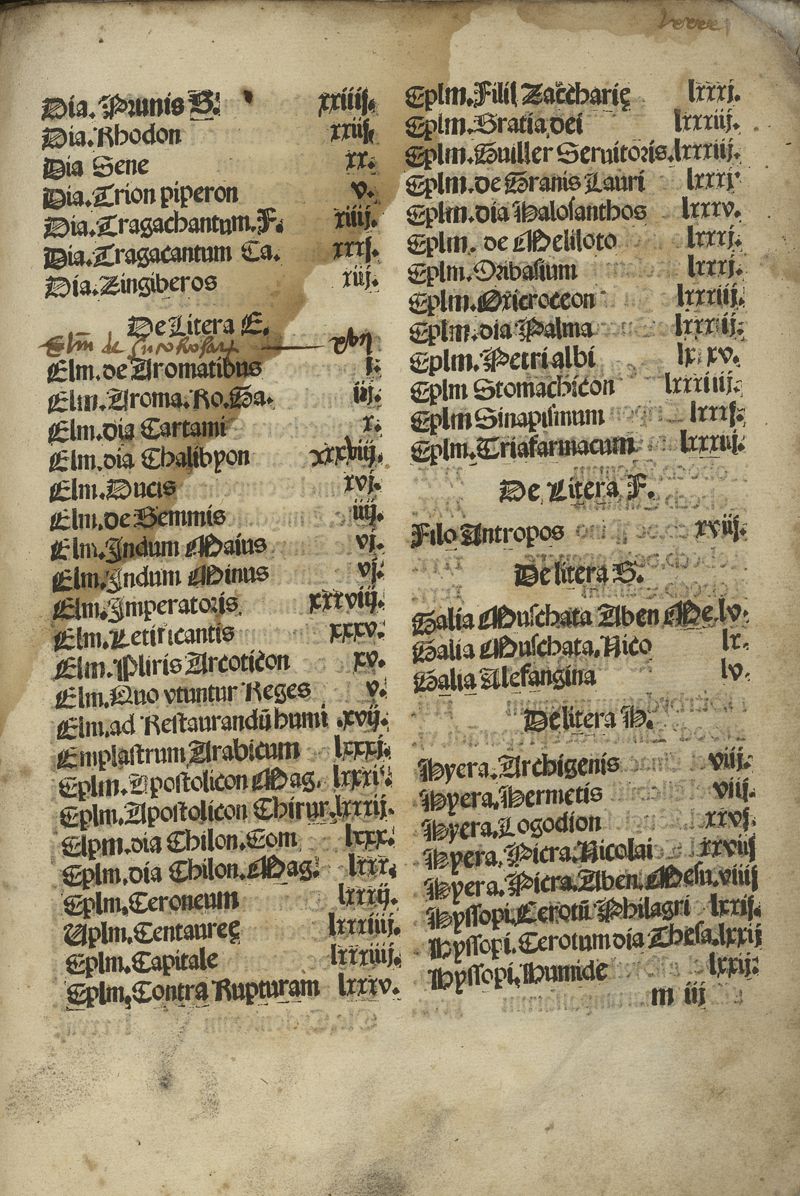 Dia. Prunis S. xxiiij.
Dia. Rhodon xxiij.
Dia Sene xx.
Dia. Trion piperon v.
Dia. Tragachantum. F. xiiij.
Dia. Tragacantum Ca. xxxj.
Dia. Zingiberos xiij.
De Litera E.
Elm de
Elm. de Aromatibus j.
Elm. Aroma. Ro. Ga. iij.
Elm. dia Cartami x.
Elm. dia Chalibyon xxxviij.
Elm. Ducis xvj.
Elm. de Gemmis iiij.
Elm. Indum Maius vj.
Elm. Indum Minus vj.
Elm. Imperatoris xxxviij.
Elm. Letificantis xxxv.
Elm. Pliris Arcoticon xv.
Elm. Quo vtuntur Reges v.
Elm. ad Restaurandū humi .xvij.
Emplastrum Arabicum lxxxj.
Eplm. Apostolicon Mag. lxxxi.
Eplm. Apostolicon Chirur. lxxxij.
Elpm. dia Chilon. Com lxxx.
Eplm. dia Chilon. Mag. lxxx.
Eplm. Ceroneum lxxxij.
Uplm. Centaureę lxxxiiij.
Eplm. Capitale lxxxiiij.
Eplm. Contra Rupturam lxxxv.
Eplm. Filij Zaccharię lxxxj.
Eplm. Gratia dei lxxxiij.
Eplm. Guiller Seruitoris. lxxxiij.
Eplm. de Granis Lauri lxxxj
Eplm. dia Halosanthos lxxxv.
Eplm. de Meliloto lxxxj.
Eplm. Oribasium lxxxj.
Eplm. Oxicroceon lxxxiij.
Eplm. dia Palma lxxxiij.
Eplm. Petri albi lx xv.
Eplm Stomachicon lxxxiiij.
Eplm Sinapismum lxxij.
Eplm. Triafarmacum lxxxij.
De Litera F.
Filo Antropos xviij.
De litera G.
Galia Muschata Aben Me. lv.
Galia Muschata. Nico lx.
Galia Alefangina lv.
De litera H.
Hyera. Archigenis viij.
Hyera. Hermetis viij.
Hyera. Logodion xxvj.
Hyera. Picra. Nicolai xxviij
Hyera. Picra. Aben. Mesu. viiij
Hyssopi. Cerotū Philagri lxxij.
Hyssopi. Cerotum dia Thesa. lxxij
Hyssopi. Humide lxxij.
m iij